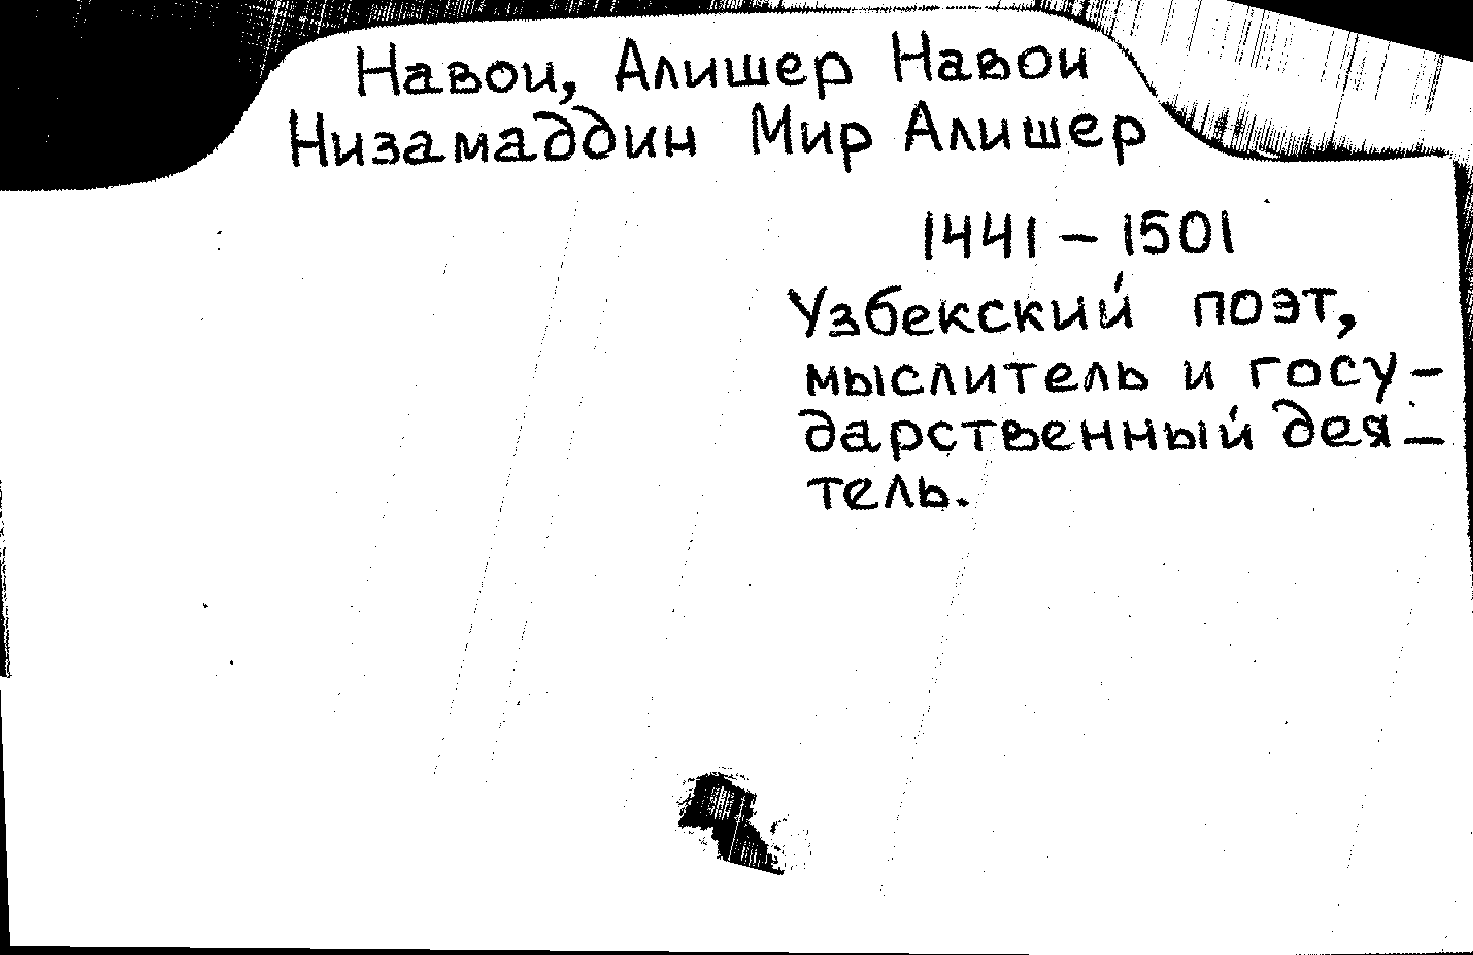 Навои, Алишер Навои
Низамаддин Мир Алишер
1441 – 1501
Узбекский поэт,
мыслитель и госу-
дарственный дея-
тель.